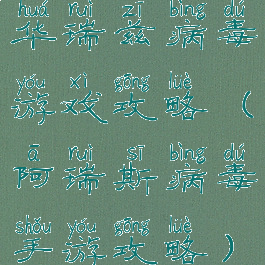 huá ruì zī bìng dú
华瑞兹病毒
yóu xì gōng lüè
游戏攻略（
ā ruì sī bìng dú
阿瑞斯病毒
shǒu yóu gōng lüè
手游攻略）